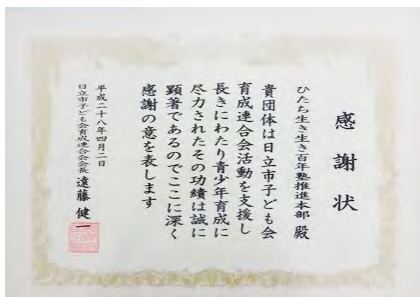 感謝状
ひたち生き生き百年塾推進本部 殿
貴団体は日立市子ども会
育成連合会活動を支援し
長きにわたり青少年育成に
尽力されたその功績は誠に
顕著であるのでここに深く
感謝の意を表します
平成二十八年四月二日
日立市子ども会育成連合会会長 遠藤健一